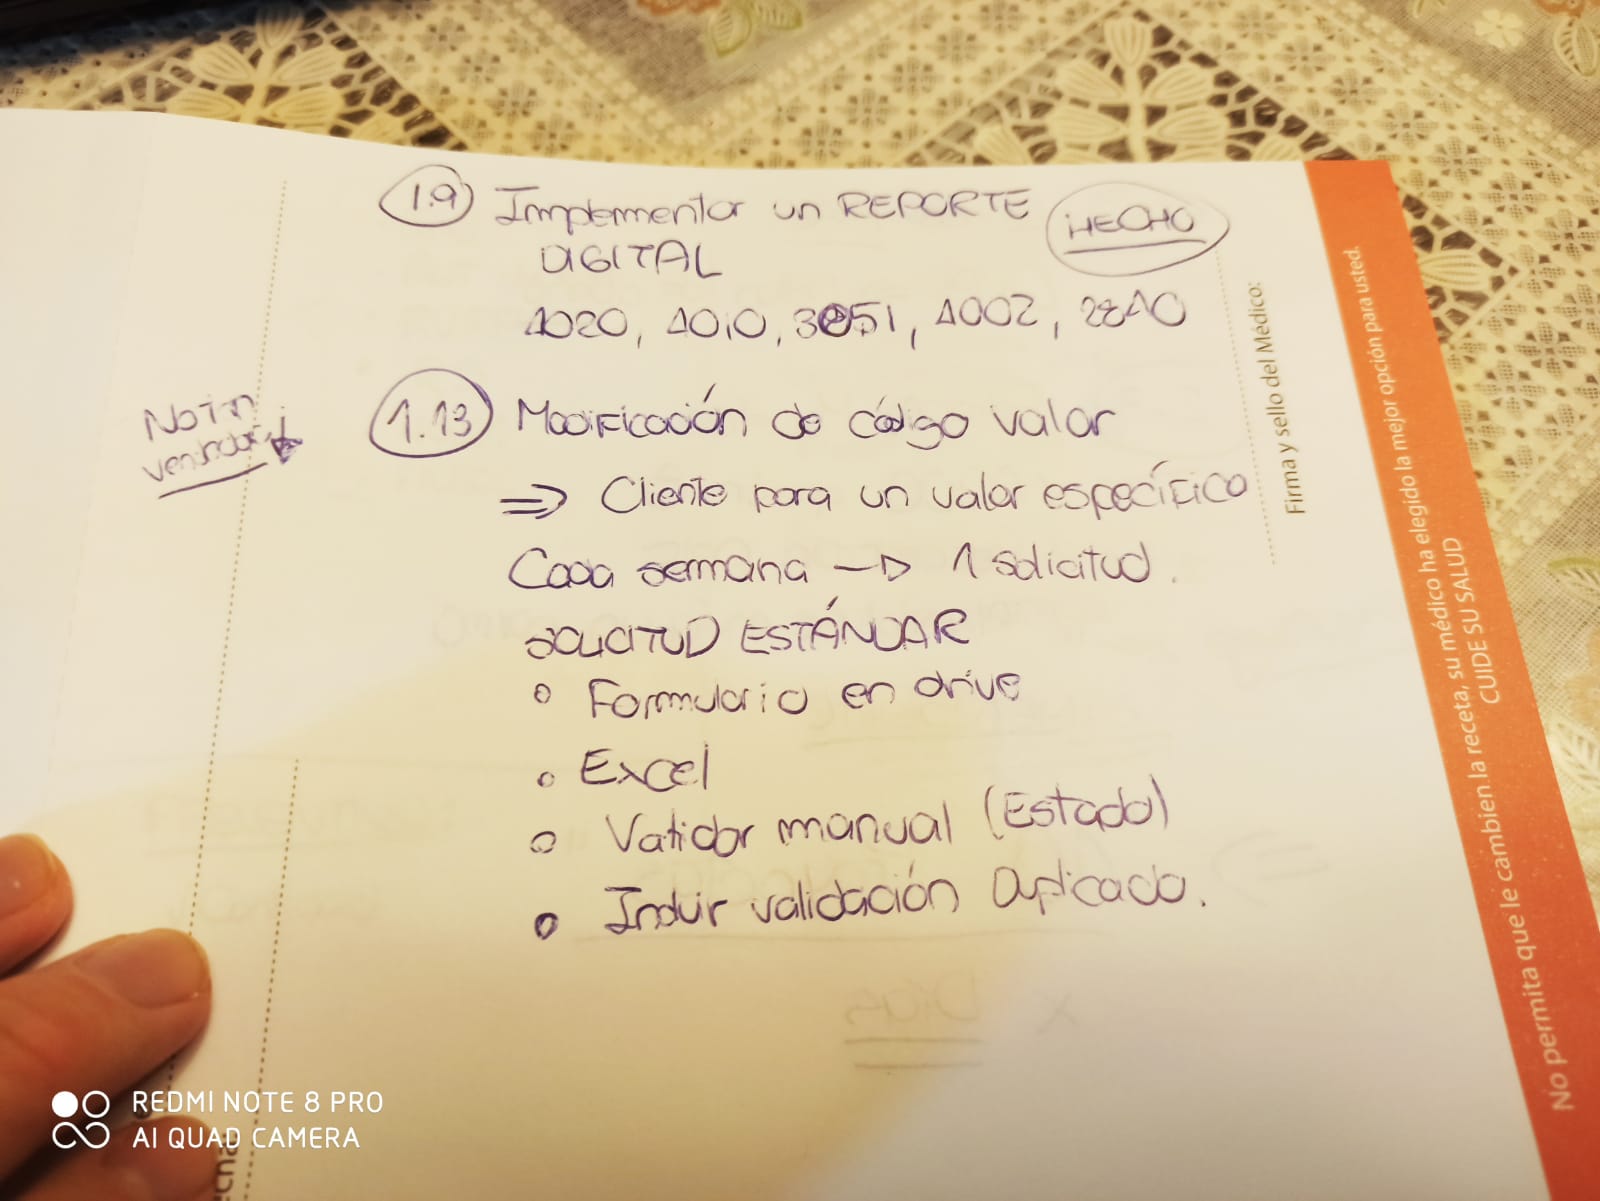 1.9 Implementar un REPORTE HECHO
DIGITAL
4020, 4010, 3051, 4002, 2840
1.13 Modificación de código valor
⇒ Cliente para un valor específico
Cada semana → 1 solicitud.
SOLICITUD ESTÁNDAR
○ Formulario en drive
○ Excel
○ Validar manual (Estado)
○ Incluir validación Duplicado.
Días
Firma y sello del Médico:
No permita que le cambien la receta, su médico ha elegido la mejor opción para usted.
CUIDE SU SALUD
REDMI NOTE 8 PRO
AI QUAD CAMERA